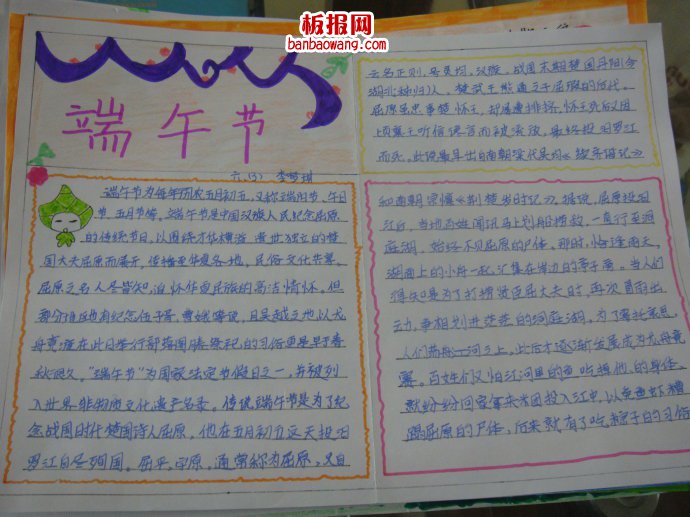 板报网
banbaowang.com
端午节
六.(3)
端午节为每年历农五月初五,又称端阳节、午日
节、五月节等。端午节是中国汉族人民纪念屈原
的传统节日,以围绕才华横溢、遗世独立的楚
国大夫屈原而展开,传播至华夏各地,民俗文化共享,
屈原之名人尽皆知,追怀华自民族的高洁情怀。但
部分地区也有纪念伍子胥、曹娥等说,且吴越之地以龙
舟竞渡在此日举行部落图腾祭祀的习俗更是早于春
秋很久。"端午节"为国家法定节假日之一,并被列
入世界非物质文化遗产名录。传统端午节是为了纪
念战国时代楚国诗人屈原,他在五月初五这天投汨
罗江自尽殉国。屈平,字原,通常称为屈原,又自
云名正则,号灵均,汉族,战国末期楚国丹阳(今
湖北秭归)人,楚武王熊通之子屈瑕的后代。
屈原虽忠事楚怀王,却屡遭排挤,怀王死后又因
顷襄王听信谗言而被流放,最终投汨罗江
而死。此说最早出自南朝梁代吴均《续齐谐记》
和南朝宗懔《荆楚岁时记》。据说,屈原投汨
罗江后,当地百姓闻讯马上划船捞救,一直行至洞
庭湖,始终不见屈原的尸体。那时,恰逢雨天,
湖面上的小舟一起汇集在岸边的亭子旁。当人们
得知是为了打捞贤臣屈大夫时,再次冒雨出
动,争相划进茫茫的洞庭湖。为了寄托哀思,
人们荡舟江河之上,此后才逐渐发展成为龙舟竞
赛。百姓们又怕江河里的鱼吃掉他的身体,
就纷纷回家拿来米团投入江中,以免鱼虾糟
蹋屈原的尸体,后来就有了吃粽子的习俗